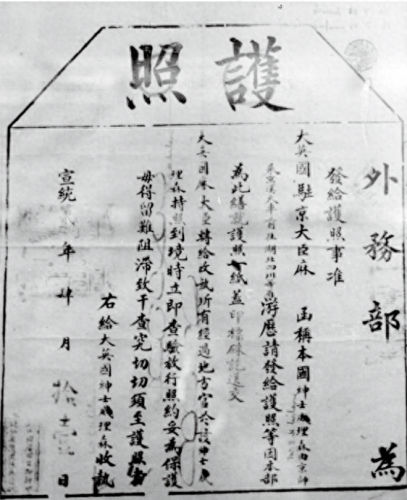 護照
外務部 為
發給護照事准
大英國駐京大臣麻 函稱本國紳士 理森由京師
游歷請發給護照等因本部
為此繕就護照一紙蓋印標硃
大英國麻大臣轉給收執所有經過地方官
理森持照到境時立即查驗放行照約妥為保護
毋得留難阻滯致干查究切切須至護照者
右給大英國紳士 理森收執
宣統 年肆月拾 日